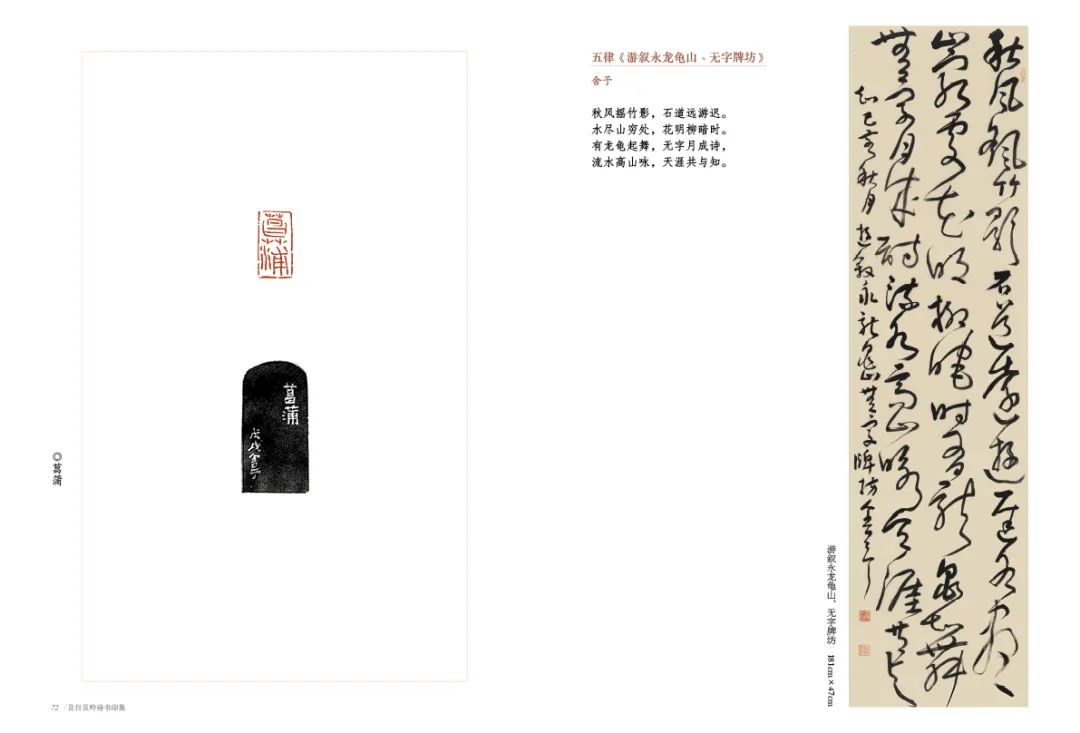 菖蒲
菖蒲
戊戌舍予
◎菖蒲
72 / 且行且吟诗书印集
五律《游叙永龙龟山、无字牌坊》
舍予
秋风摇竹影，石道远游迟。
水尽山穷处，花明柳暗时。
有龙龟起舞，无字月成诗，
流水高山咏，天涯共与知。
秋风竹影石道远遊迟水尽
山穷处花明柳暗时有龙龟起舞
無字月成诗流水高山咏天涯共与
知己亥秋月遊叙永龙龟山無字牌坊舍予
游叙永龙龟山、无字牌坊 181cm×47cm